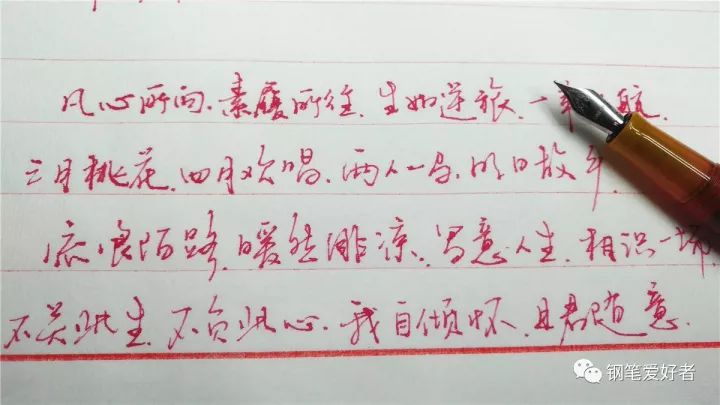 凡心所向.素履所往.生如逆旅.一苇 航.
三月桃花.四月欢唱.两人一马.明日故乡.
流浪陌路.暖 凉.写意人生.相识一场
不关此生.不负此心.我自倾怀.且君随意.
钢笔爱好者